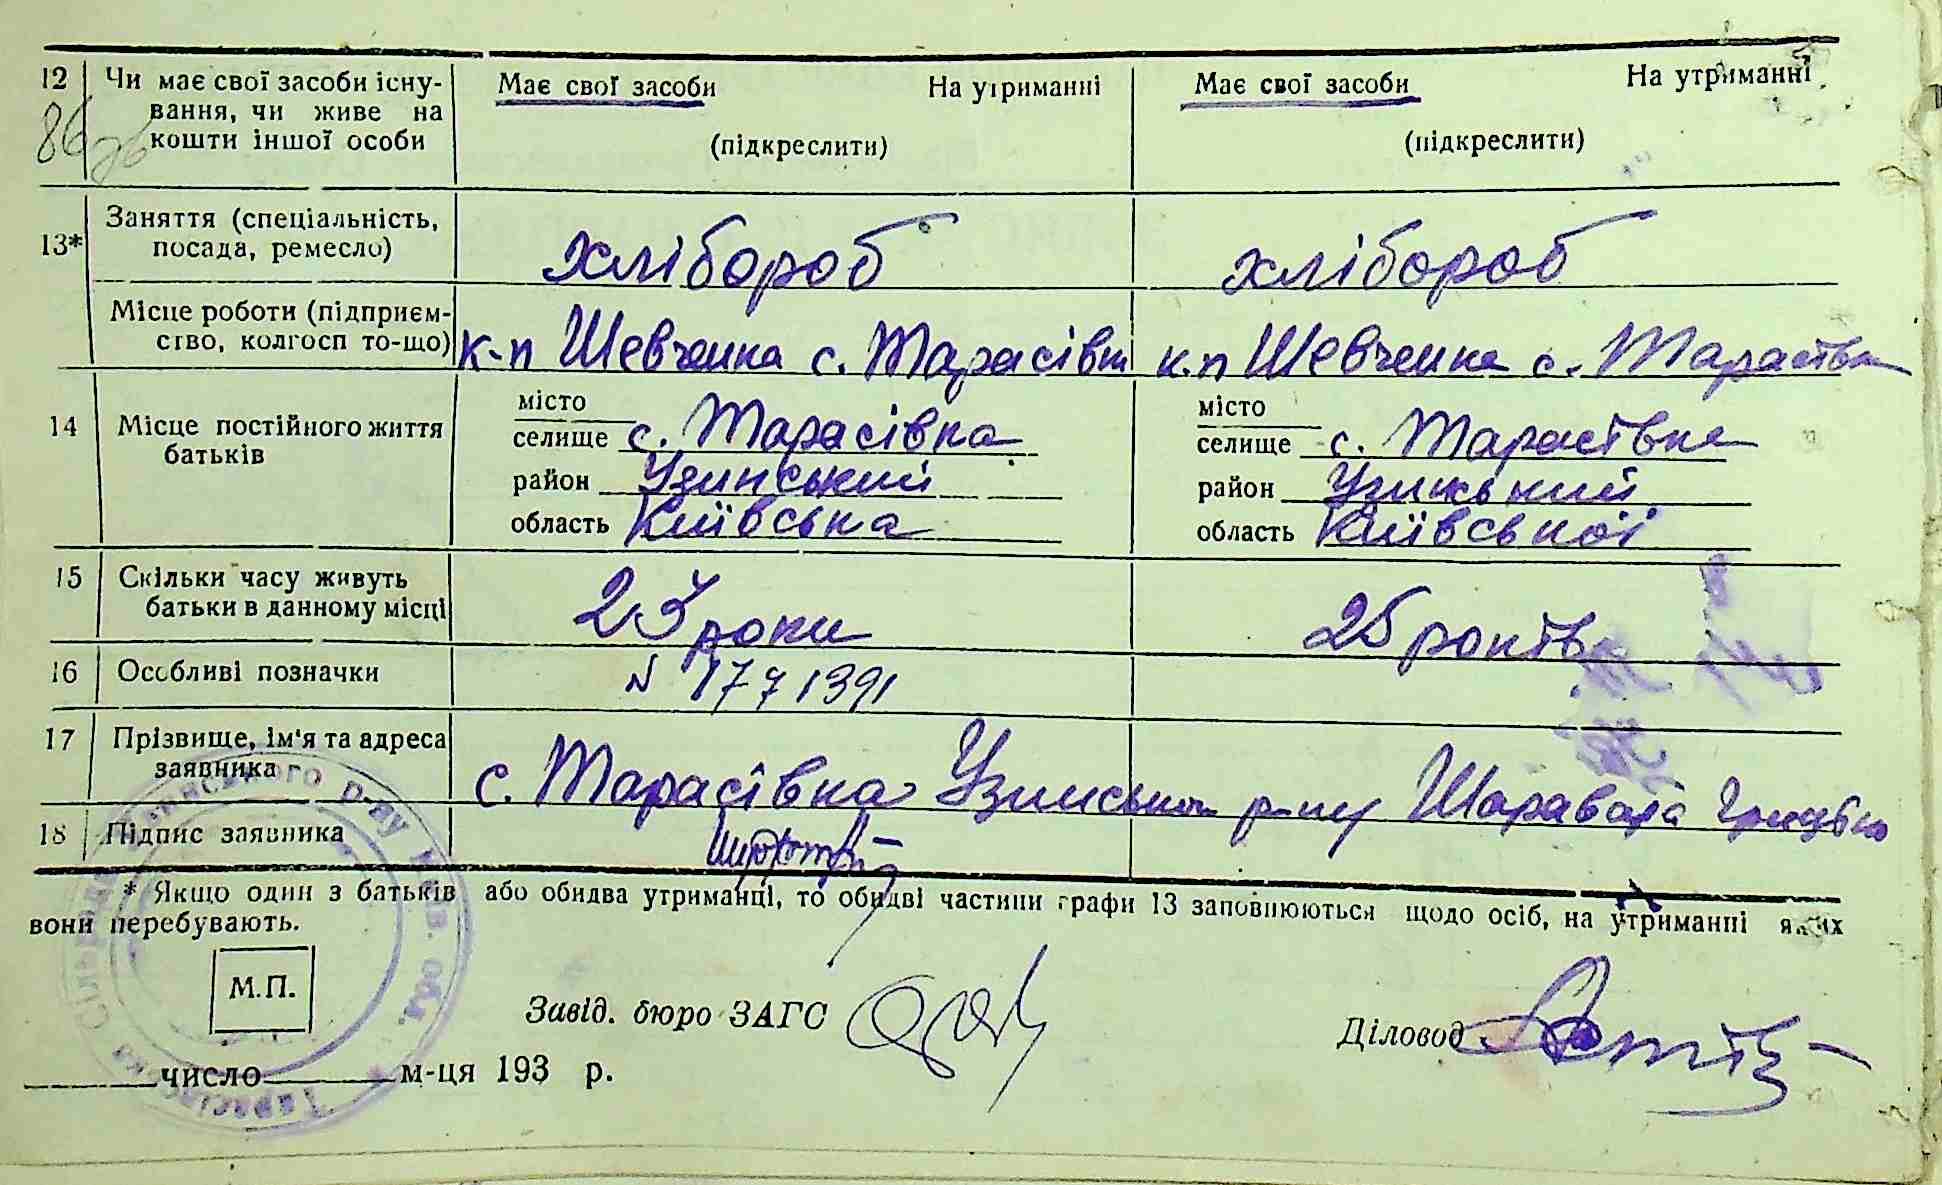 12 Чи має свої засоби існу-
вання, чи живе на
кошти іншої особи
86
Має свої засоби На утриманні
(підкреслити)
Має свої засоби На утриманні
(підкреслити)
13* Заняття (спеціальність,
посада, ремесло)
хлібороб
хлібороб
Місце роботи (підприєм-
ство, колгосп то-що)
к-п Шевченка с. Тарасівка
к-п Шевченка с. Тарасівка
14 Місце постійного життя
батьків
місто
селище с. Тарасівка
район Узинський
область Київська
місто
селище с. Тарасівка
район Узинський
область Київської
15 Скільки часу живуть
батьки в данному місці
23 роки
25 років
16 Особливі позначки
N 1771391
17 Прізвище, ім'я та адреса
заявника
с. Тарасівка Узинського р-ну Шаравара
18 Підпис заявника
* Якщо один з батьків або обидва утриманці, то обидві частини графи 13 заповнюються щодо осіб, на утриманні яких
вони перебувають.
М.П.
Завід. бюро ЗАГС
Діловод
число м-ця 193 р.
Тарасівська Сільрада Узинського р-ну Київ. обл.